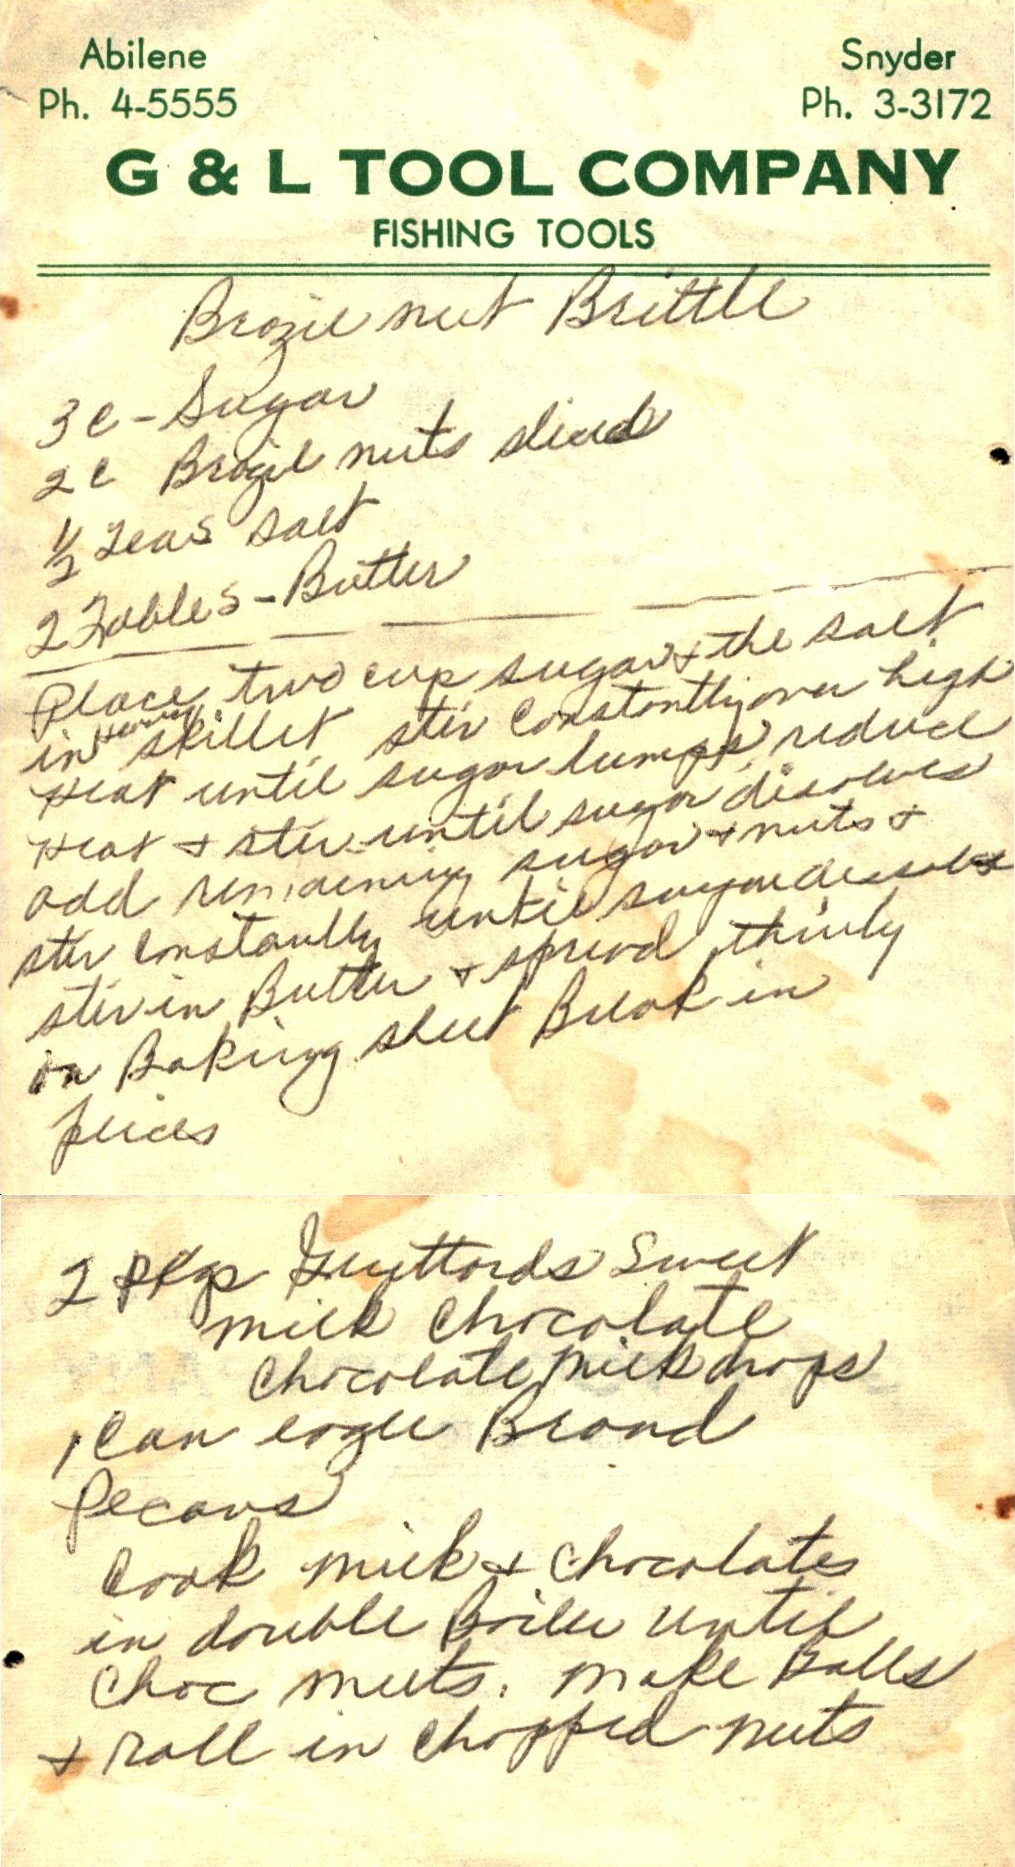 Abilene Snyder
Ph. 4-5555 Ph. 3-3172
G & L TOOL COMPANY
FISHING TOOLS
Brazil nut Brittle
3 c - Sugar
2 c Brazil nuts sliced
1/2 Teas salt
2 Tables - Butter
Place two cup sugar & the salt
in heavy skillet stir constantly over high
Heat until sugar lumps, reduce
Heat & stir until sugar disolves
add remaining sugar & nuts &
stir constantly until sugar dissolves
stir in Butter & spread thinly
on Baking sheet Break in
peices
2 pkgs Guyttards Sweet
milk chocolate
chocolate milk drops
1 can eagle Brand
Pecans
Cook milk & chocolates
in double Boiler until
choc melts. make Balls
& roll in chopped nuts